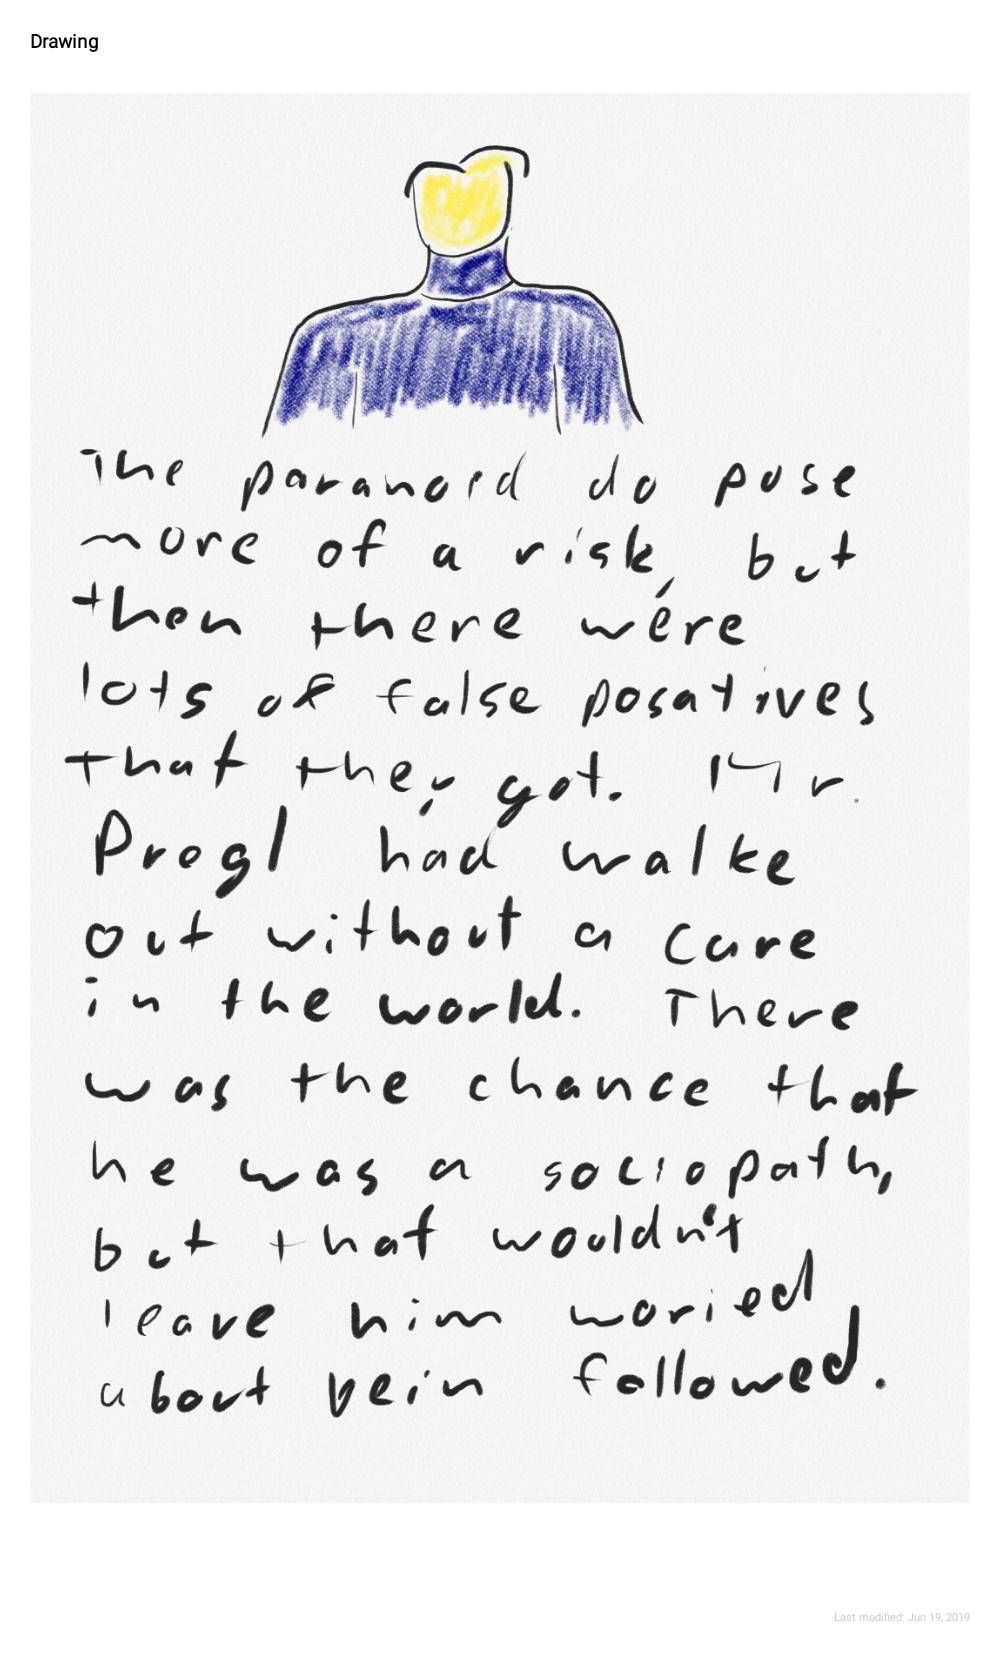 Drawing
The paranoid do pose
more of a risk, but
then there were
lots of false posatives
that they got. Mr.
Progl had walke
out without a care
in the world. There
was the chance that
he was a sociopath,
but that wouldn't
leave him woried
about bein followed.
Last modified: Jun 19, 2019